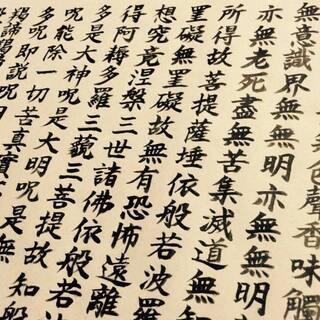 色聲香味觸
無意識界無無明亦無無明
亦無老死盡無苦集滅道無
所得故菩提薩埵依般若波羅
罣礙無罣礙故無有恐怖遠離
想究竟涅槃三世諸佛依般若
得阿耨多羅三藐三菩提故知般
多是大神呪是大明呪是無
呪能除一切苦真實
多呪即說呪